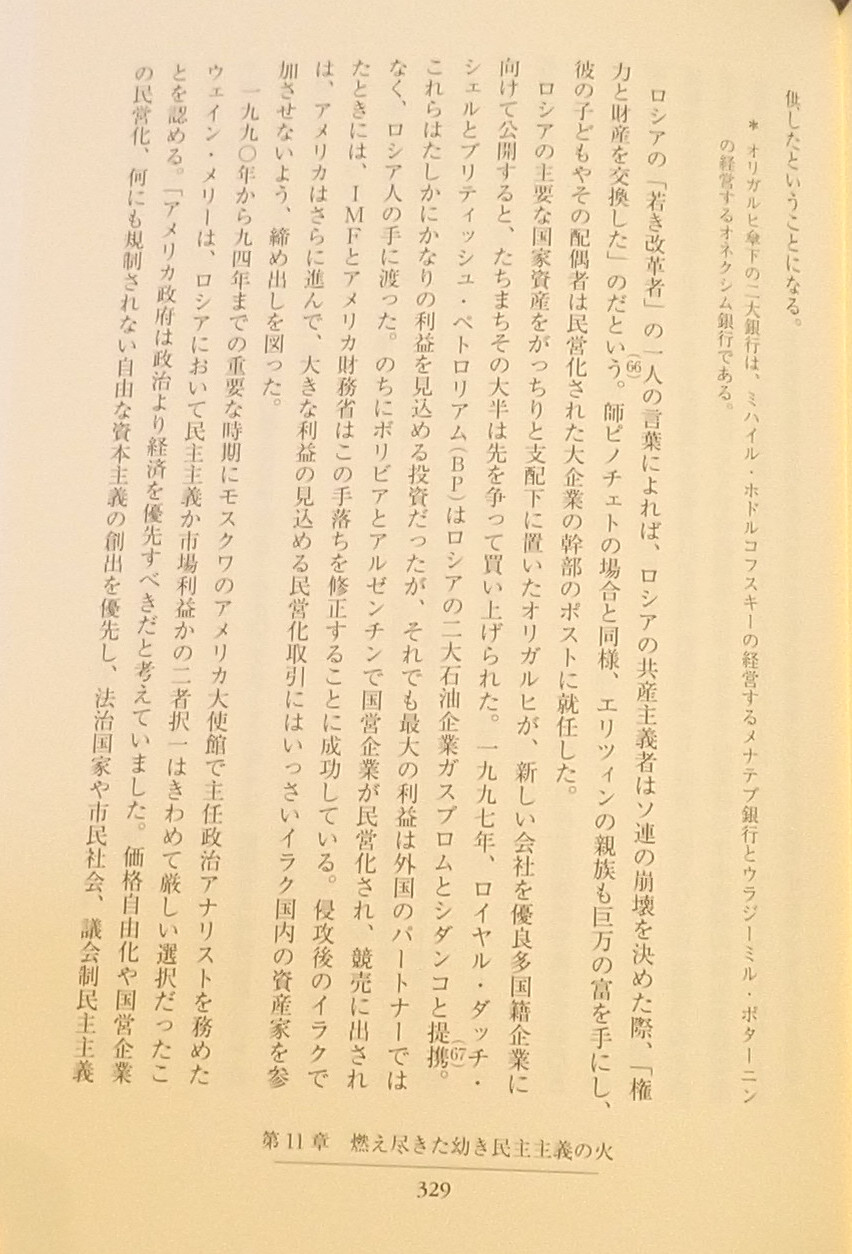 供したということになる。
＊ オリガルヒ傘下の二大銀行は、ミハイル・ホドルコフスキーの経営するメナテプ銀行とウラジーミル・ポターニン
の経営するオネクシム銀行である。
ロシアの「若き改革者」の一人の言葉によれば、ロシアの共産主義者はソ連の崩壊を決めた際、「権
力と財産を交換した」のだという。(66)師ピノチェトの場合と同様、エリツィンの親族も巨万の富を手にし、
彼の子どもやその配偶者は民営化された大企業の幹部のポストに就任した。
ロシアの主要な国家資産をがっちりと支配下に置いたオリガルヒが、新しい会社を優良多国籍企業に
向けて公開すると、たちまちその大半は先を争って買い上げられた。一九九七年、ロイヤル・ダッチ・
シェルとブリティッシュ・ペトロリアム(BP)はロシアの二大石油企業ガスプロムとシダンコと提携。(67)
これらはたしかにかなりの利益を見込める投資だったが、それでも最大の利益は外国のパートナーでは
なく、ロシア人の手に渡った。のちにボリビアとアルゼンチンで国営企業が民営化され、競売に出され
たときには、IMFとアメリカ財務省はこの手落ちを修正することに成功している。侵攻後のイラクで
は、アメリカはさらに進んで、大きな利益の見込める民営化取引にはいっさいイラク国内の資産家を参
加させないよう、締め出しを図った。
一九九〇年から九四年までの重要な時期にモスクワのアメリカ大使館で主任政治アナリストを務めた
ウェイン・メリーは、ロシアにおいて民主主義か市場利益かの二者択一はきわめて厳しい選択だったこ
とを認める。「アメリカ政府は政治より経済を優先すべきだと考えていました。価格自由化や国営企業
の民営化、何にも規制されない自由な資本主義の創出を優先し、法治国家や市民社会、議会制民主主義
第11章 燃え尽きた幼き民主主義の火
329